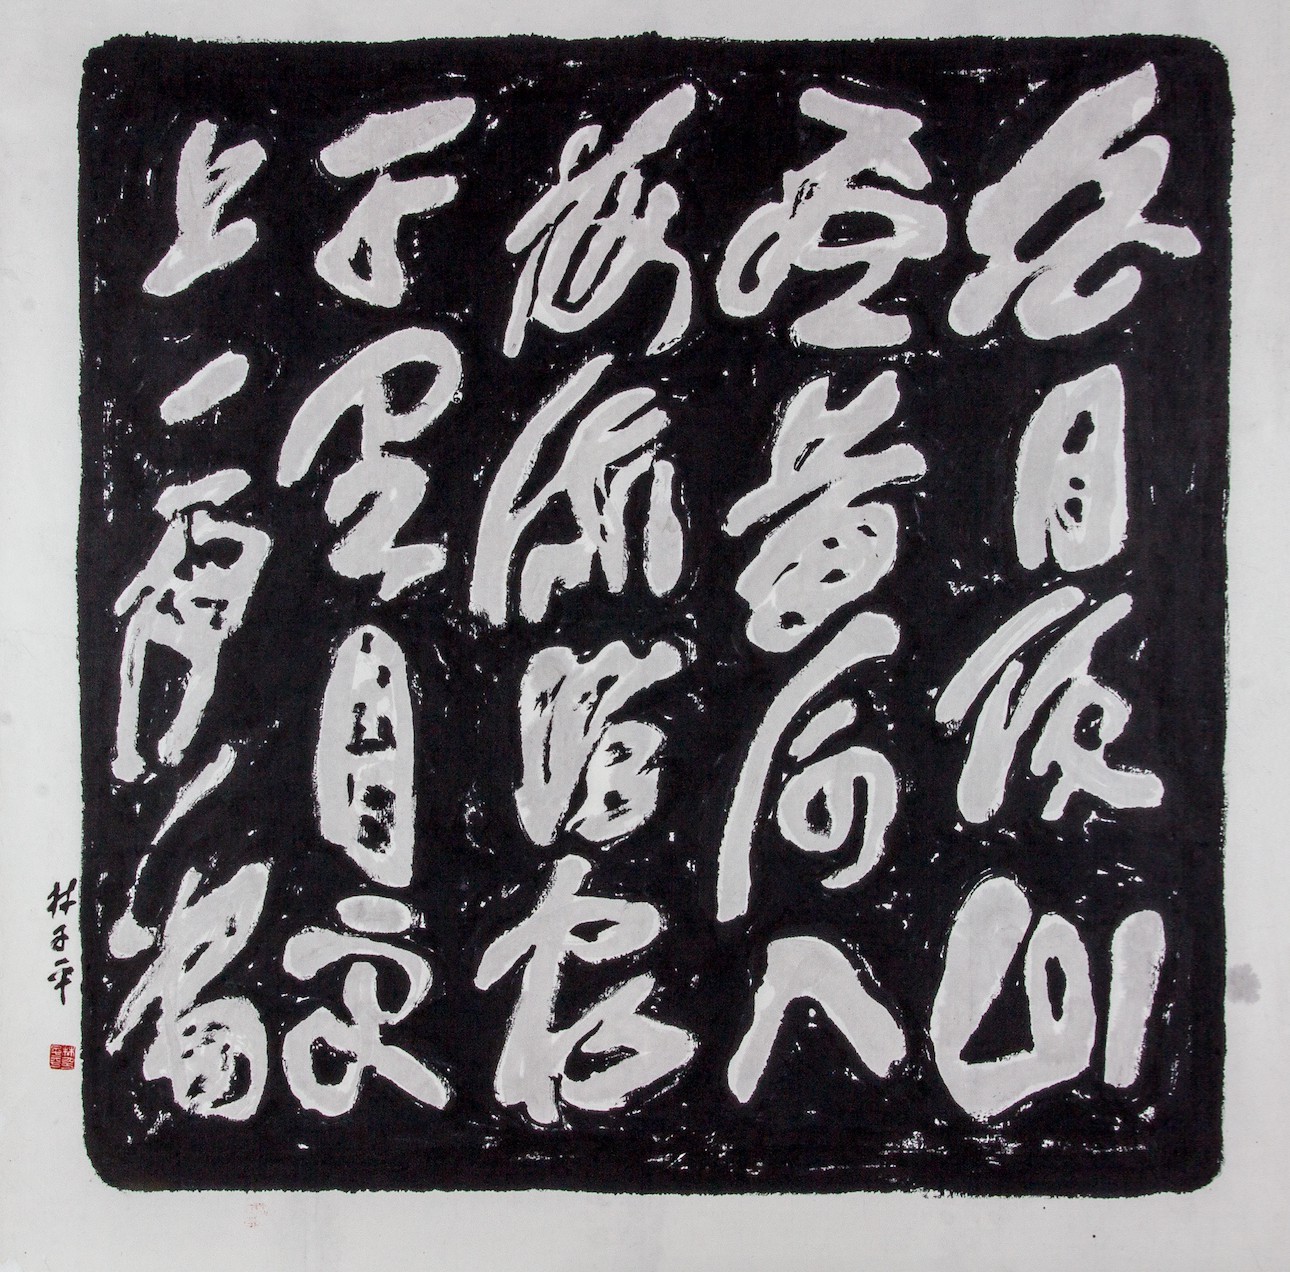 白日依山
盡黄河入
海流欲窮
千里目更
上一層樓
林子平